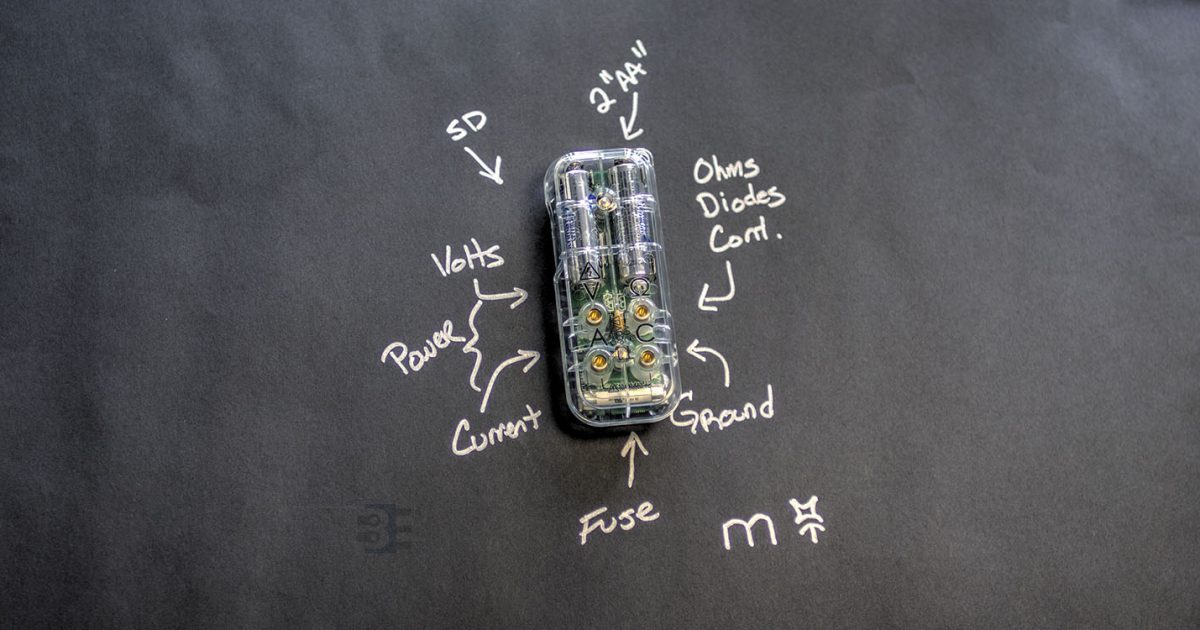 2 "AA"
SD
Ohms
Diodes
Cont.
Volts
Power
Current
Ground
Fuse
V
Ω
A
C
m
BE